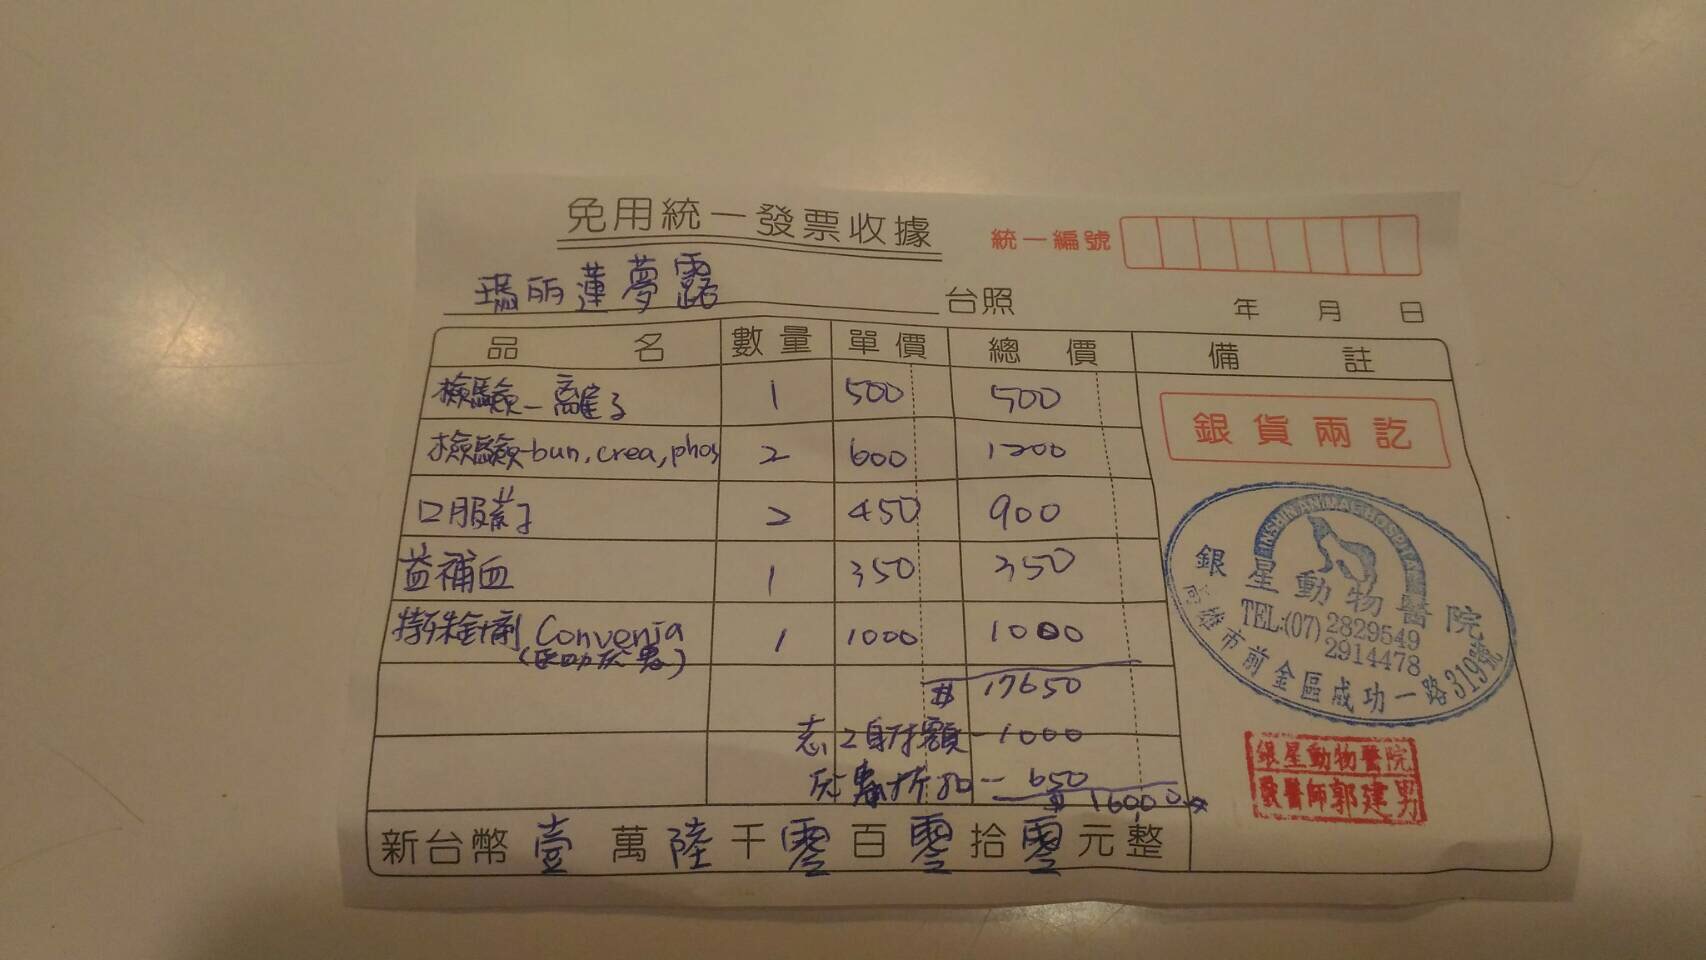 免用統一發票收據
統一編號
瑪丽蓮夢露 台照
年 月 日
品名 數量 單價 總價 備註
檢驗-離子 1 500 500
檢驗-bun,crea,phos 2 600 1200
口服葯 2 450 900
益補血 1 350 350
特殊針劑 Convenia 1 1000 1000
$ 17650
志工 額 -1000
折扣 - 650
$ 16000
新台幣壹萬陸千零百零拾零元整
銀貨兩訖
INSHIN ANIMAL HOSPITAL
銀星動物醫院
TEL:(07)2829549
2914478
高雄市前金區成功一路319號
銀星動物醫院
獸醫師郭建男